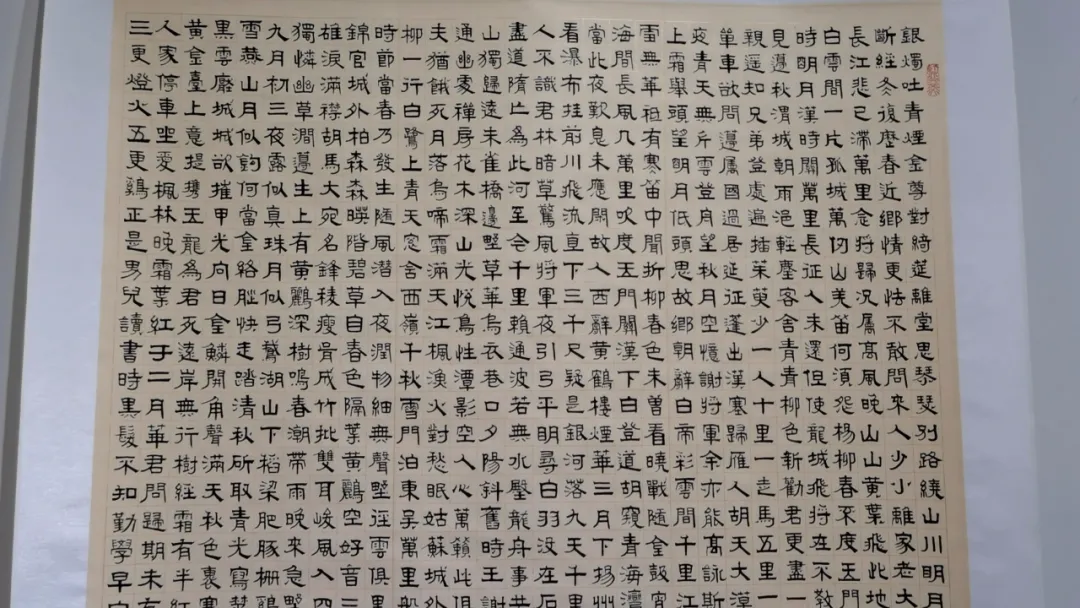 銀燭吐青煙金尊對綺筵離堂思琴瑟別路繞山川明月
斷經冬復歷春近鄉情更怯不敢問來人少小離家老大
長江悲已滯萬里念將歸況屬高風晚山山黃葉飛此地
白雲間一片孤城萬仞山羌笛何須怨楊柳春不度玉門
時明月漢時關萬里長征人未還但使龍城飛將在不教
見邊秋渭城朝雨浥輕塵客舍青青柳色新勸君更盡一
親遥知兄弟登處遍插茱萸少一人十里一走馬五里一
單車欲問邊屬國過居延征蓬出漢塞歸雁人胡天大漠
夜青天無片雲登舟望秋月空憶謝將軍余亦能高詠斯
上霜舉頭望明月低頭思故鄉朝辭白帝彩雲間千里江
雨無華祗有寒笛中聞折柳春色未曾看曉戰隨金鼓宵
海間長風几萬里吹度玉門關漢下白登道胡窺青海灣
當此夜歎息未應閑故人西辭黃鶴樓煙華三月下揚州
看瀑布挂前川飛流直下三千尺疑是銀河落九天千里
人不識君林暗草驚風將軍夜引弓平明尋白羽沒在石
盡道隋亡為此河至今千里賴通波若無水龍舟事共
山獨歸遠朱雀橋邊野草華烏衣巷口夕陽斜舊時王謝
通幽處禪房花木深山光悅鳥性潭影空人心萬籟此俱
夫猶餓死月落烏啼霜滿天江楓漁火對愁眠姑蘇城外
柳一行白鷺上青天窓含西嶺千秋雪門泊東吳萬里船
時節當春乃發生隨風潛入夜潤物細無聲野徑雲俱黑
錦官城外柏森森映階碧草自春色隔葉黃鸝空好音三
雄淚滿襟胡馬大宛名鋒稜瘦骨成竹批雙耳峻風入四
獨憐幽草澗邊生上有黃鸝深樹鳴春潮帶雨晚來急野
九月初三夜露似真珠月似弓鵞湖山下稻梁肥豚柵雞
雪燕山月似鉤何當金絡腦快走踏清秋斫取青光寫楚
黑雲壓城城欲摧甲光向日金鱗開角聲滿天秋色裏塞
黃金臺上意提攜玉龍為君死遠岸無行樹經霜有半紅
人家停車坐愛楓林晚霜葉紅于二月華君問歸期未有
三更燈火五更鷄正是男兒讀書時黑髮不知勤學早白